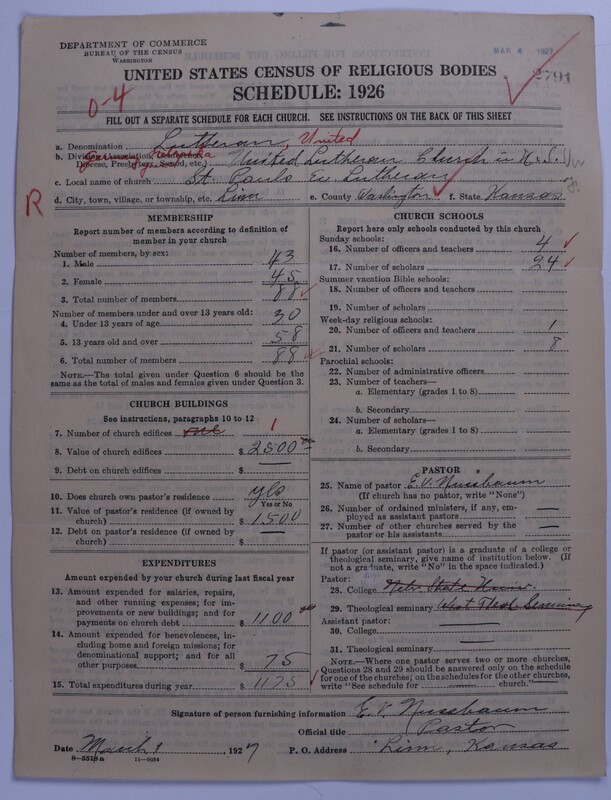 DEPARTMENT OF COMMERCE
BUREAU OF THE CENSUS
WASHINGTON
MAR 4 1927
2791
UNITED STATES CENSUS OF RELIGIOUS BODIES
SCHEDULE: 1926
0-4
FILL OUT A SEPARATE SCHEDULE FOR EACH CHURCH. SEE INSTRUCTIONS ON THE BACK OF THIS SHEET
a. Denomination Lutheran, United
b. Division (Association, Conference, Diocese, Presbytery, Synod, etc.) United Lutheran Church in
c. Local name of church St. Pauls Ev. Lutheran
R
d. City, town, village, or township, etc. Linn e. County Washington f. State Kansas
MEMBERSHIP
Report number of members according to definition of member in your church
Number of members, by sex:
1. Male 43
2. Female 45
3. Total number of members 88
Number of members under and over 13 years old:
4. Under 13 years of age 30
5. 13 years old and over 58
6. Total number of members 88
NOTE.—The total given under Question 6 should be the same as the total of males and females given under Question 3.
CHURCH BUILDINGS
See instructions, paragraphs 10 to 12
7. Number of church edifices one 1
8. Value of church edifices $ 2500 00
9. Debt on church edifices $ —
10. Does church own pastor's residence yes
Yes or No
11. Value of pastor's residence (if owned by church) $ 1500
12. Debt on pastor's residence (if owned by church) $ —
EXPENDITURES
Amount expended by your church during last fiscal year
13. Amount expended for salaries, repairs, and other running expenses; for improvements or new buildings; and for payments on church debt $ 1100 00
14. Amount expended for benevolences, including home and foreign missions; for denominational support; and for all other purposes $ 75
15. Total expenditures during year $ 1175
CHURCH SCHOOLS
Report here only schools conducted by this church
Sunday schools:
16. Number of officers and teachers 4
17. Number of scholars 24
Summer vacation Bible schools:
18. Number of officers and teachers
19. Number of scholars
Week-day religious schools:
20. Number of officers and teachers 1
21. Number of scholars 8
Parochial schools:
22. Number of administrative officers
23. Number of teachers—
a. Elementary (grades 1 to 8)
b. Secondary
24. Number of scholars—
a. Elementary (grades 1 to 8)
b. Secondary
PASTOR
25. Name of pastor E. V. Nussbaum
(If church has no pastor, write "None")
26. Number of ordained ministers, if any, employed as assistant pastors —
27. Number of other churches served by the pastor or his assistants —
If pastor (or assistant pastor) is a graduate of a college or theological seminary, give name of institution below. (If not a graduate, write "No" in the space indicated.)
Pastor:
28. College Nebr State Univer.
29. Theological seminary West Theol Seminary
Assistant pastor:
30. College —
31. Theological seminary —
NOTE.—Where one pastor serves two or more churches, Questions 28 and 29 should be answered only on the schedule for one of the churches; on the schedules for the other churches, write "See schedule for ——— church."
Signature of person furnishing information E. V. Nussbaum
Official title Pastor
Date March 1, 1927 P. O. Address Linn, Kansas
8-5518a 11-9084